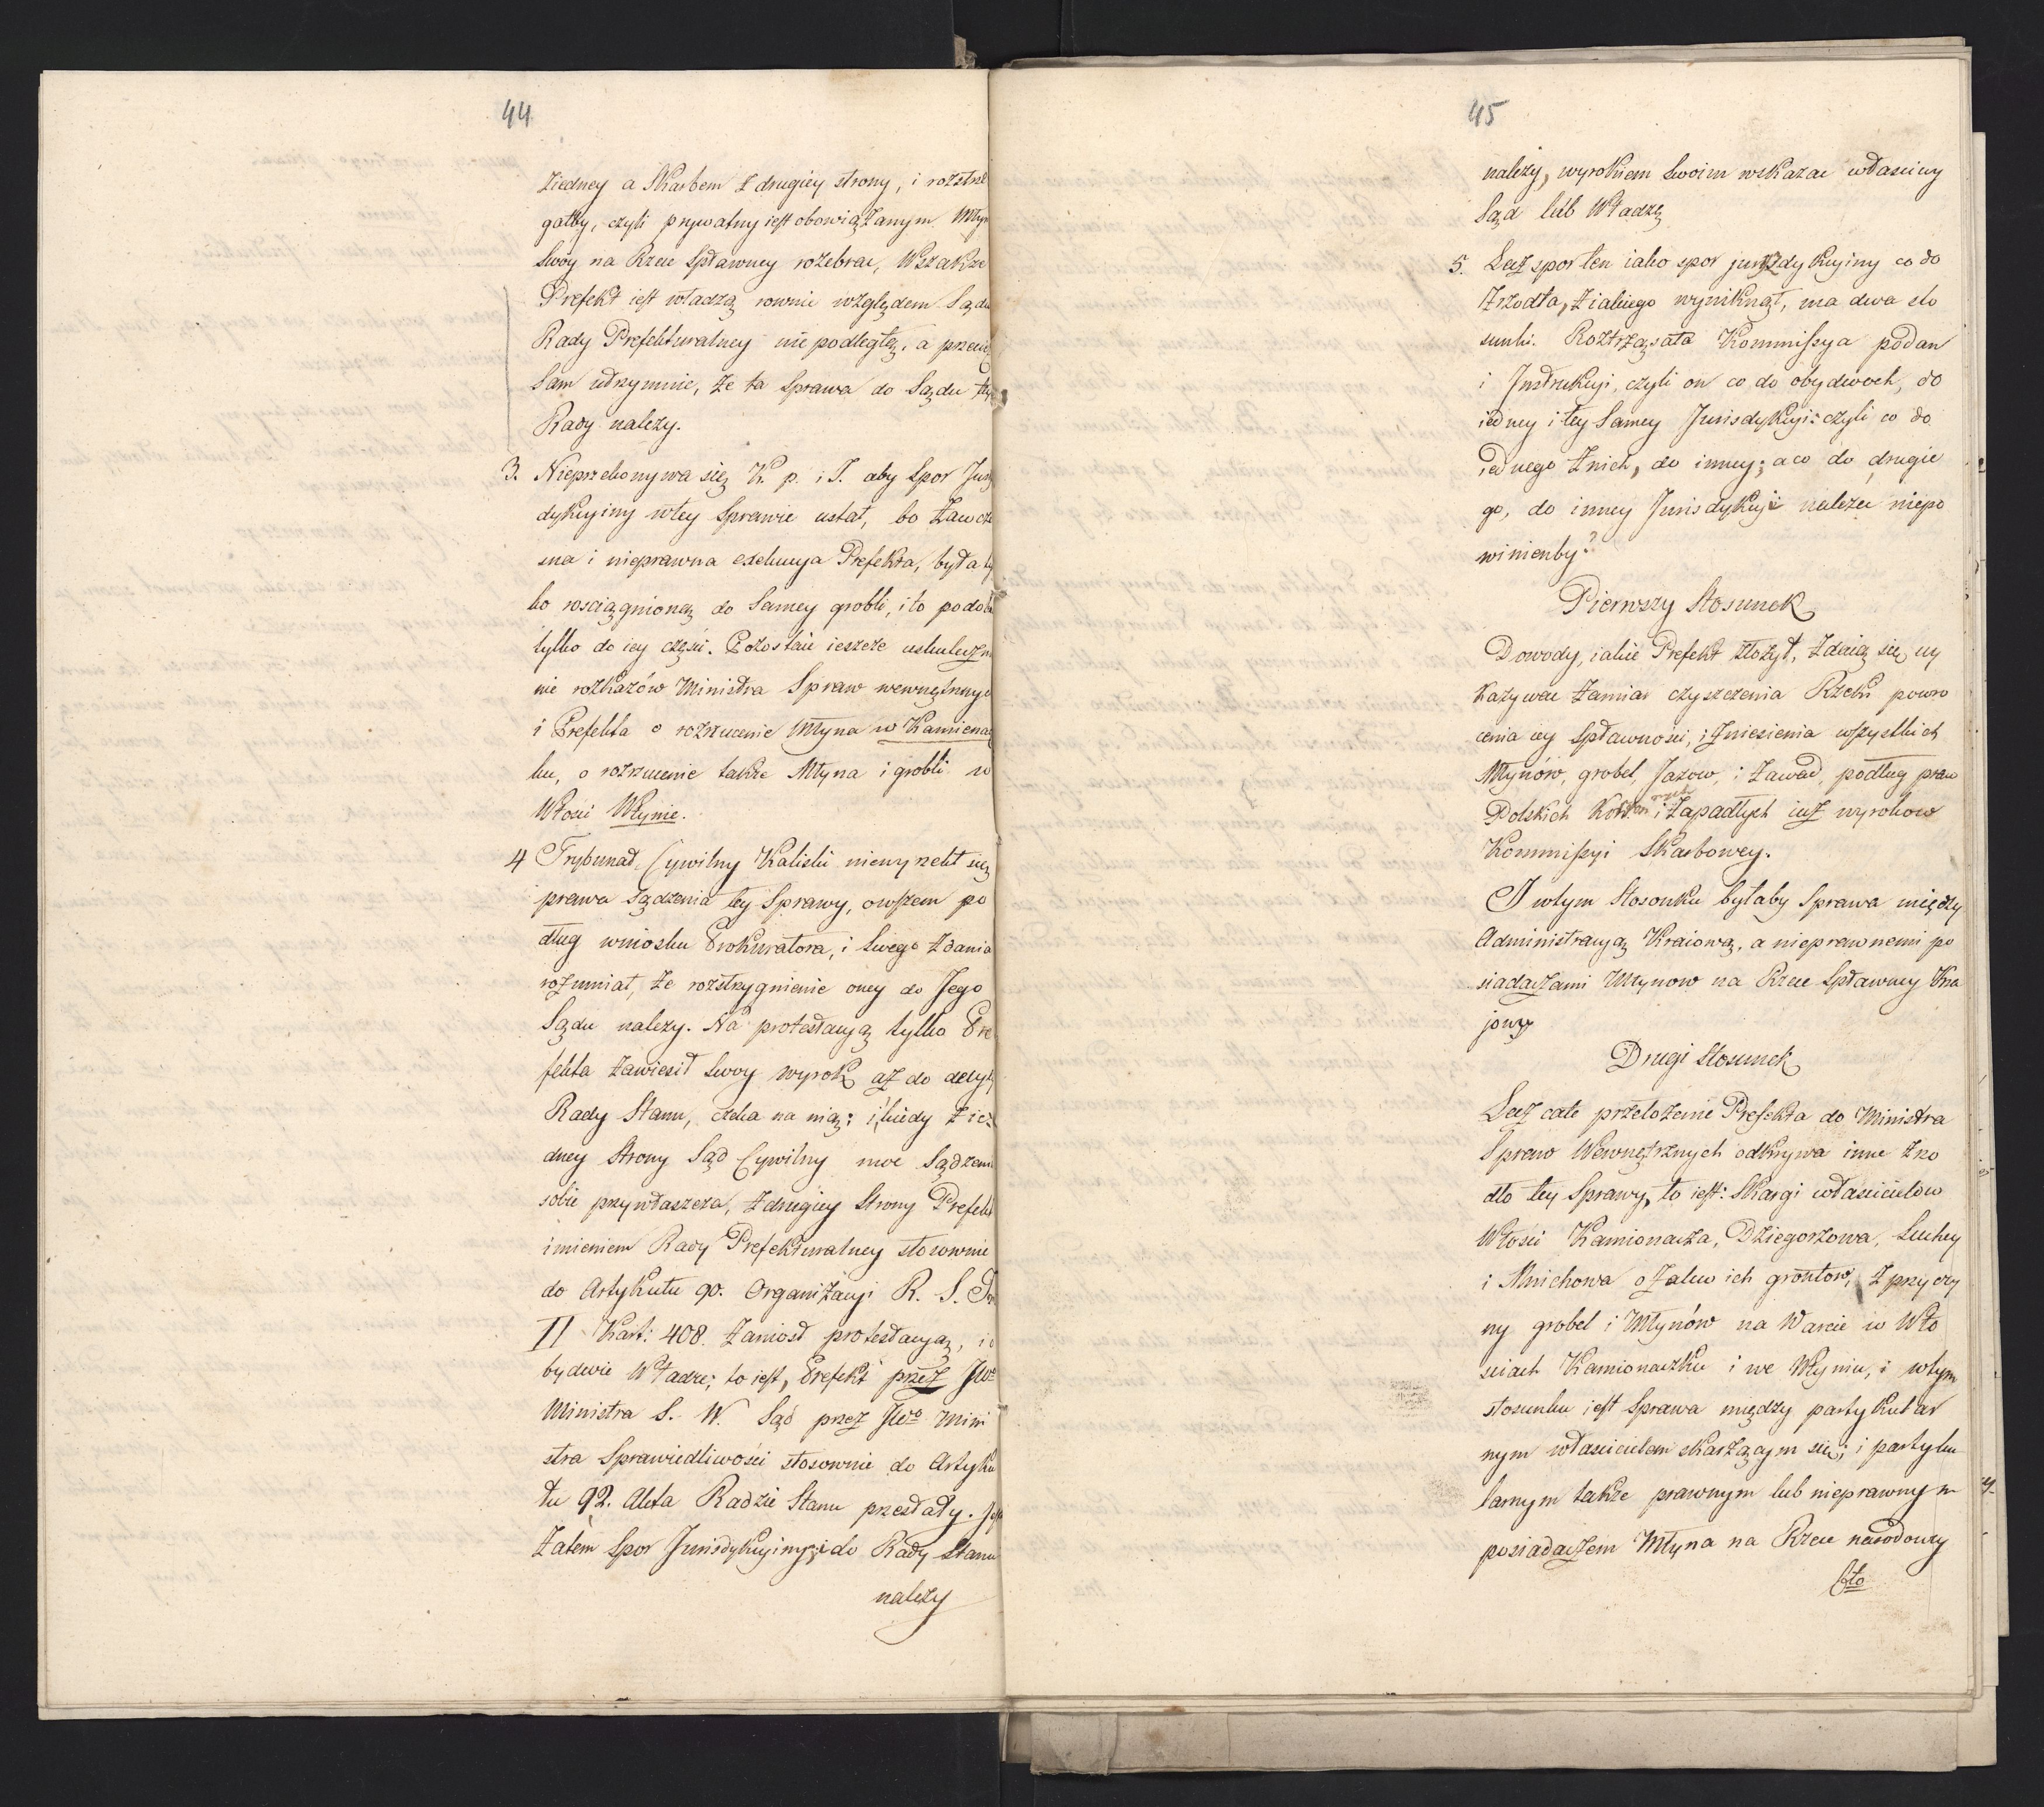 44
ziedney a Skarbem z drugiey strony, i rozstrze
gałby, czyli prywatny iest obowiązanym Młyn
swoy na Rzece spławney rozebrac, Wszakze
Prefekt iest władzą rownie względem Sądu
Rady Prefekturalney nie podległą, a przecię
sam utrzymuie, że ta sprawa do Sądu tey
Rady nalezy.
3. Nieprzekonywa się K. p. i I. aby Spor Juris
dykcyiny wtey Sprawie ustał, bo zawcze
sna i nieprawna exekucya Prefekta, była ty
ko rosciągnioną do samey grobli, i to podob
tylko do iey części. Pozostaie ieszcze uskuteczn
nie rozkazów Ministra Spraw wewnętrznych
i Prefekta o rozrzucenie Młyna w Kamienacz
ku, o rozrzucenie także Młyna i grobli w
Włosci Włynie.
4 Trybunał Cywilny Kaliski niewyrzekł się
prawa sądzenia tey Sprawy, owszem po
dług wniosku Prokuratora, i swego zdania
rozumiał, że rozstrzygnienie oney do Jego
Sądu nalezy. Na protestacyą tylko Pre
fekta zawiesił swoy wyrok aż do decyzyi
Rady Stanu, czeka na nią; i kiedy z ie=
dney Strony Sąd Cywilny moc Sądzenia
sobie przywłaszcza, z drugiey Strony Prefekt
imieniem Rady Prefekturalney stosownie
do Artykułu 90. Organizacyi R. S. Tom
II Kart: 408. zaniosł protestacyą, i o
bydwie Władze; to iest, Prefekt przez JWo
Ministra S. W. Sąd przez JWo Mini
stra Sprawiedliwości stosownie do Artyku
łu 92. Akta Radzie Stanu przesłały. Jest
zatem Spor Jurisdykcyiny; i do Rady Stanu
nalezy
45
nalezy, wyrokiem Swoim wskazac własciwy
Sąd lub Władzę
5. Lecz spor ten iako spor jurisdykcyiny co do
zrzodła, z iakiego wyniknął, ma dwa sto
sunki. Roztrząsała Kommissya podan
i Instrukcyi, czyli on co do obydwoch, do
iedney i tey samey Jurisdykcyi: czyli co do
iednego z nich, do inney; a co do drugie
go, do inney Jurisdykcyi nalezeć niepo
winienby?
Pierwszy Stosunek
Dowody, iakie Prefekt złozył, zdaią się uy
kazywac zamiar czyszczenia Rzeki powro
cenia iey spławności, i zniesienia wszystkich
Młynów, grobel, Jazow, i zawad, podług praw
Polskich i zapadłych iuż wyrokow
Kommissyi Skarbowey.
I wtym Stosonku byłaby Sprawa między
Administracyą Kraiową, a nieprawnemi po
siadaczami Młynow na Rzece Spławney Kra
jowey
Drugi Stosunek
Lecz całe przełożenie Prefekta do Ministra
Spraw Wewnętrznych odkrywa inne zrzo
dło tey Sprawy, to iest: Skargi właścicielow
Włości Kamionacza, Dziegorzowa, Suchey
i Mnichowa o zalew ich grontow, z przyczy
ny grobel i Młynów na Warcie w Wło
sciach Kamionaczku i we Włyniu, i wtym
stosunku iest Sprawa między partykular
nym właścicielem skarżącym się; i partyku
larnym także prawnym lub nieprawnym
posiadaczem Młyna na Rzece narodowey
Cto